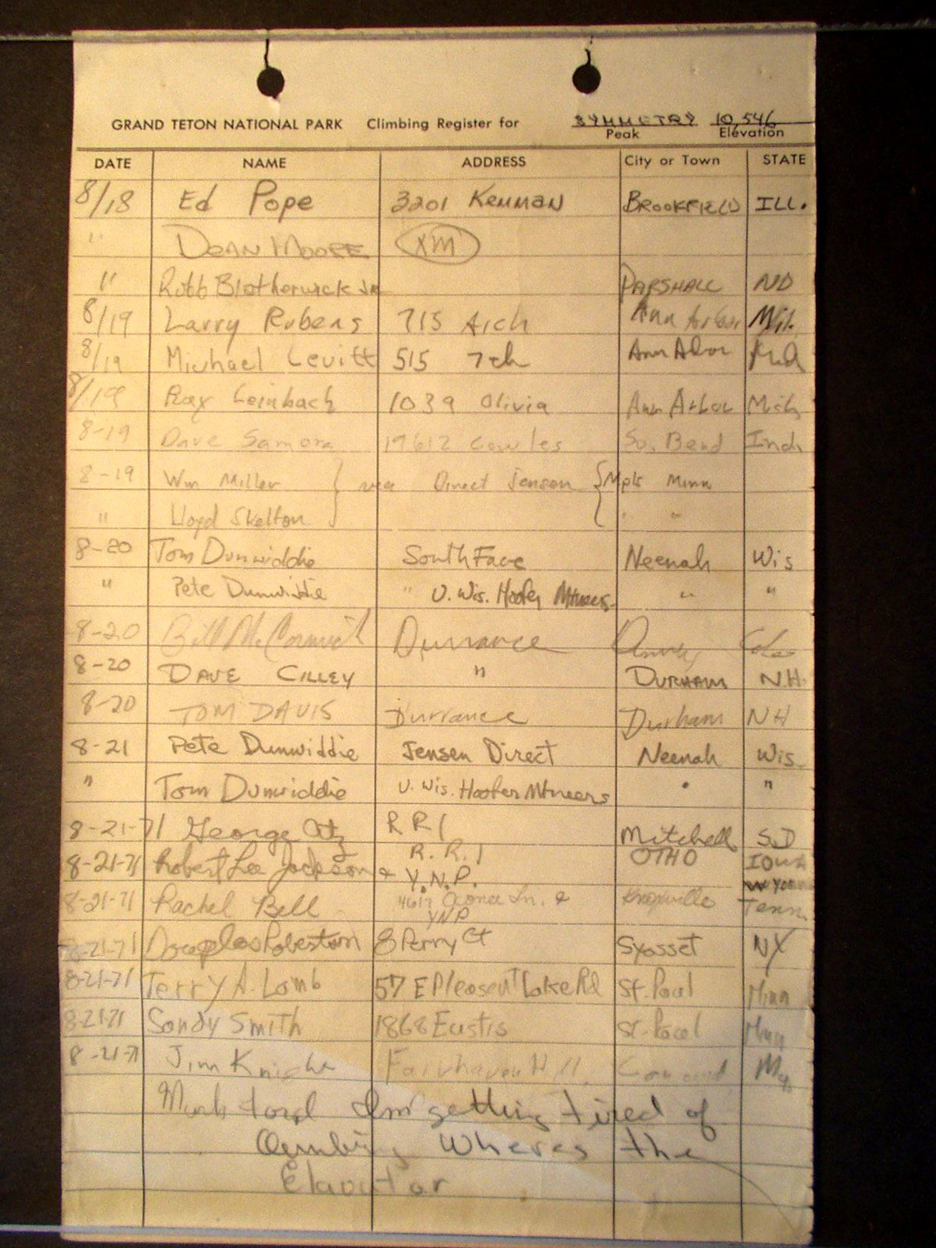 GRAND TETON NATIONAL PARK Climbing Register for SYMMETRY 10,546
Peak Elevation
DATE NAME ADDRESS City or Town STATE
8/18 Ed Pope 3201 Kenman BROOKFIELD ILL.
" DEAN MOORE XM
" Robb Blotherwick Jr. PARSHALL ND
8/19 Larry Rubens 715 Arch Ann Arbor
8/19 Michael Levitt 515 7th Ann Arbor
8/19 Ray Leinbach 1039 Olivia Ann Arbor Mich
8-19 Dave Samora 17612 Cowles So. Bend Ind
8-19 Wm Miller } via Direct Jensen { Mpls Minn
" Lloyd Skelton } { " "
8-20 Tom Dunwiddie South Face Neenah Wis
" Pete Dunwiddie " U. Wis. Hoofer Mtneers " "
8-20 Bill McCormick Durrance Colo
8-20 DAVE CILLEY " DURHAM N.H.
8-20 TOM DAVIS Durrance Durham NH
8-21 Pete Dunwiddie Jensen Direct Neenah Wis.
" Tom Dunwiddie U. Wis. Hoofer Mtneers " "
8-21-71 George RR1 Mitchell S.D
8-21-71 Robert Lee Jackson R.R.1 OTHO IOWA
& Y.N.P.
8-21-71 Rachel Bell 4617 Ln. & Knoxville Tenn.
YNP
8-21-71 Douglas Robertson 8 Perry Ct Syosset NY
8-21-71 Terry A. Lomb 57 E Pleasent Lake Rd St. Paul Minn
8-21-71 Sandy Smith 1868 Eustis St. Paul Minn
8-21-71 Jim Knight Fairhaven Hill
I'm getting tired of
Wheres the
Elavator